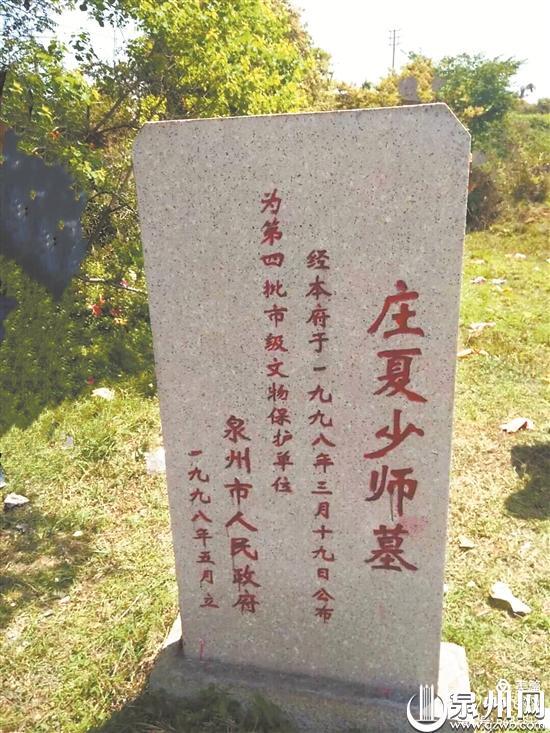 庄夏少师墓
经本府于一九九八年三月十九日公布
为第四批市级文物保护单位
泉州市人民政府
一九九八年五月立
泉州网
www.qzwb.com